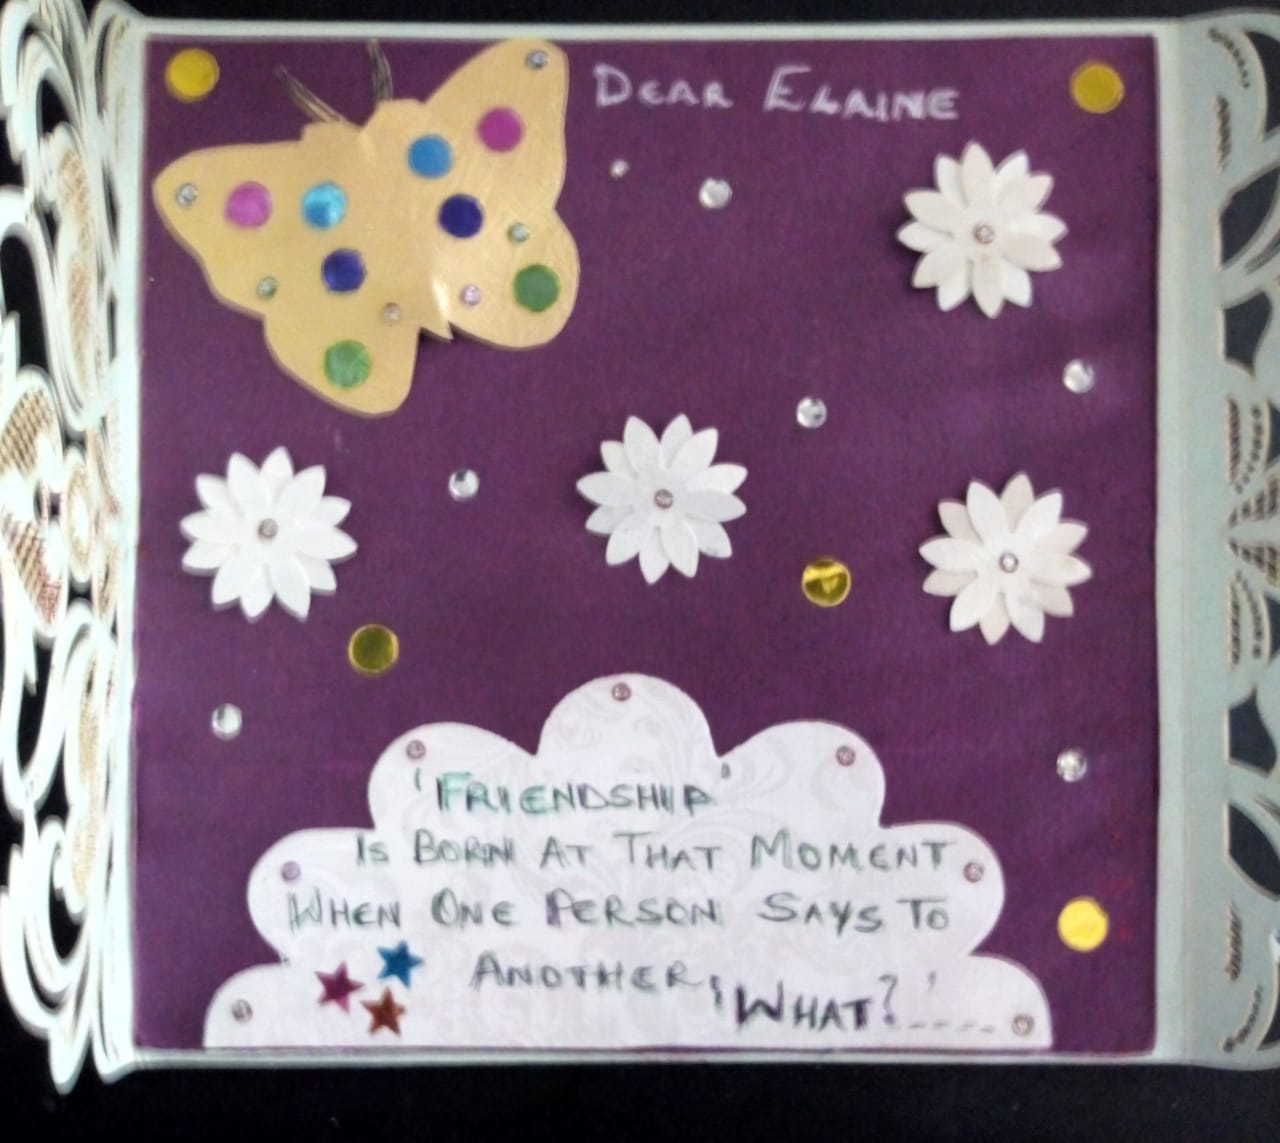 DEAR ELAINE
'FRIENDSHIP'
IS BORN AT THAT MOMENT
WHEN ONE PERSON SAYS TO
ANOTHER, 'WHAT?'----